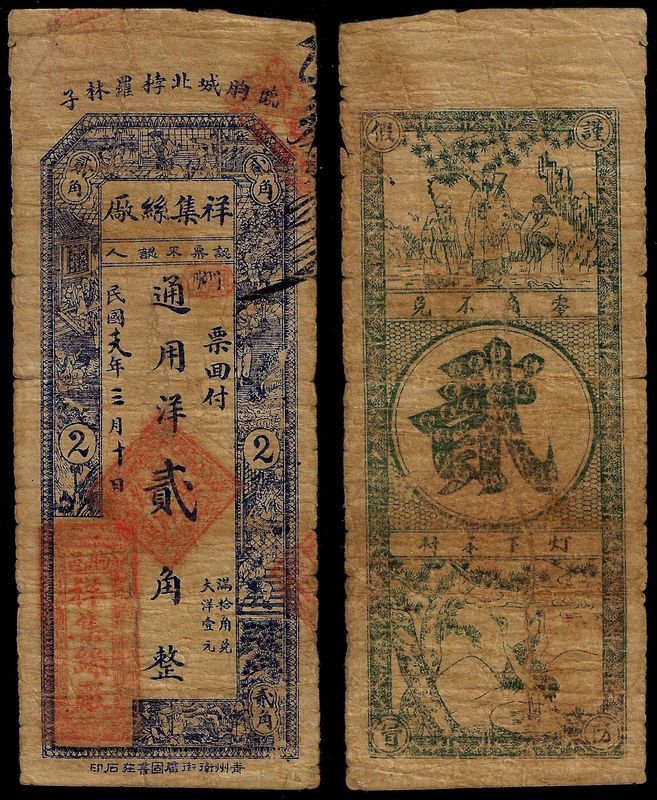 臨朐城北桲羅林子
貳角
貳角
祥集絲廠
認票不認人
票回付
通用洋貳角整
滿拾角兑
大洋壹元
民國十八年三月十日
2
2
貳角
朐邑
祥集絲廠
青州衛街廣固書莊石印
謹
假
零角不兑
貳
灯下不付
防
冒